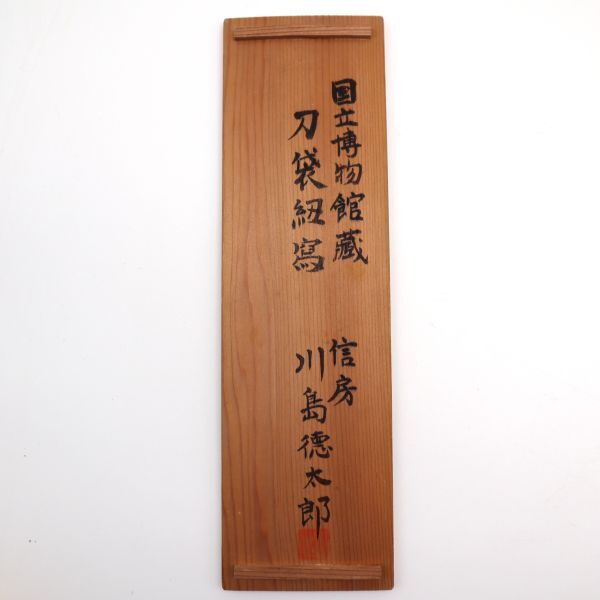 国立博物館藏
刀袋紐寫
信房
川島德太郎